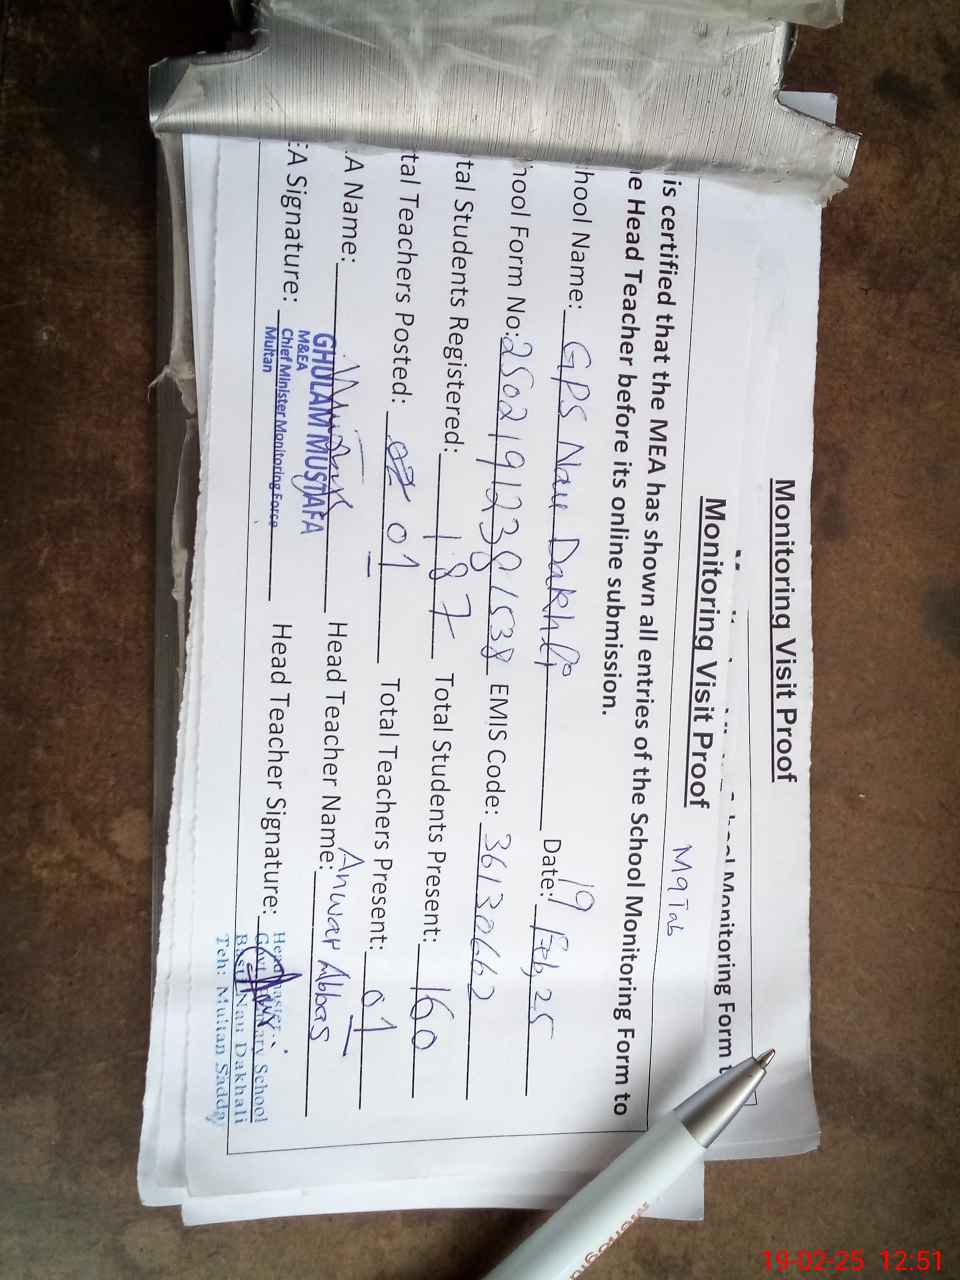 Monitoring Visit Proof
Monitoring Form t
Monitoring Visit Proof
is certified that the MEA has shown all entries of the School Monitoring Form to
e Head Teacher before its online submission.
hool Name: GPS Nau Dakhli Date: 19 Feb, 25
hool Form No: EMIS Code: 36130662
tal Students Registered: 187 Total Students Present: 160
tal Teachers Posted: 01 Total Teachers Present: 01
:A Name: Head Teacher Name: Anwar Abbas
GHULAM MUSTAFA
M&EA
:A Signature: Chief Minister Monitoring Force Head Teacher Signature:
Multan
Govt. School
Nau Dakhali
Teh: Multan Saddar
19-02-25 12:51